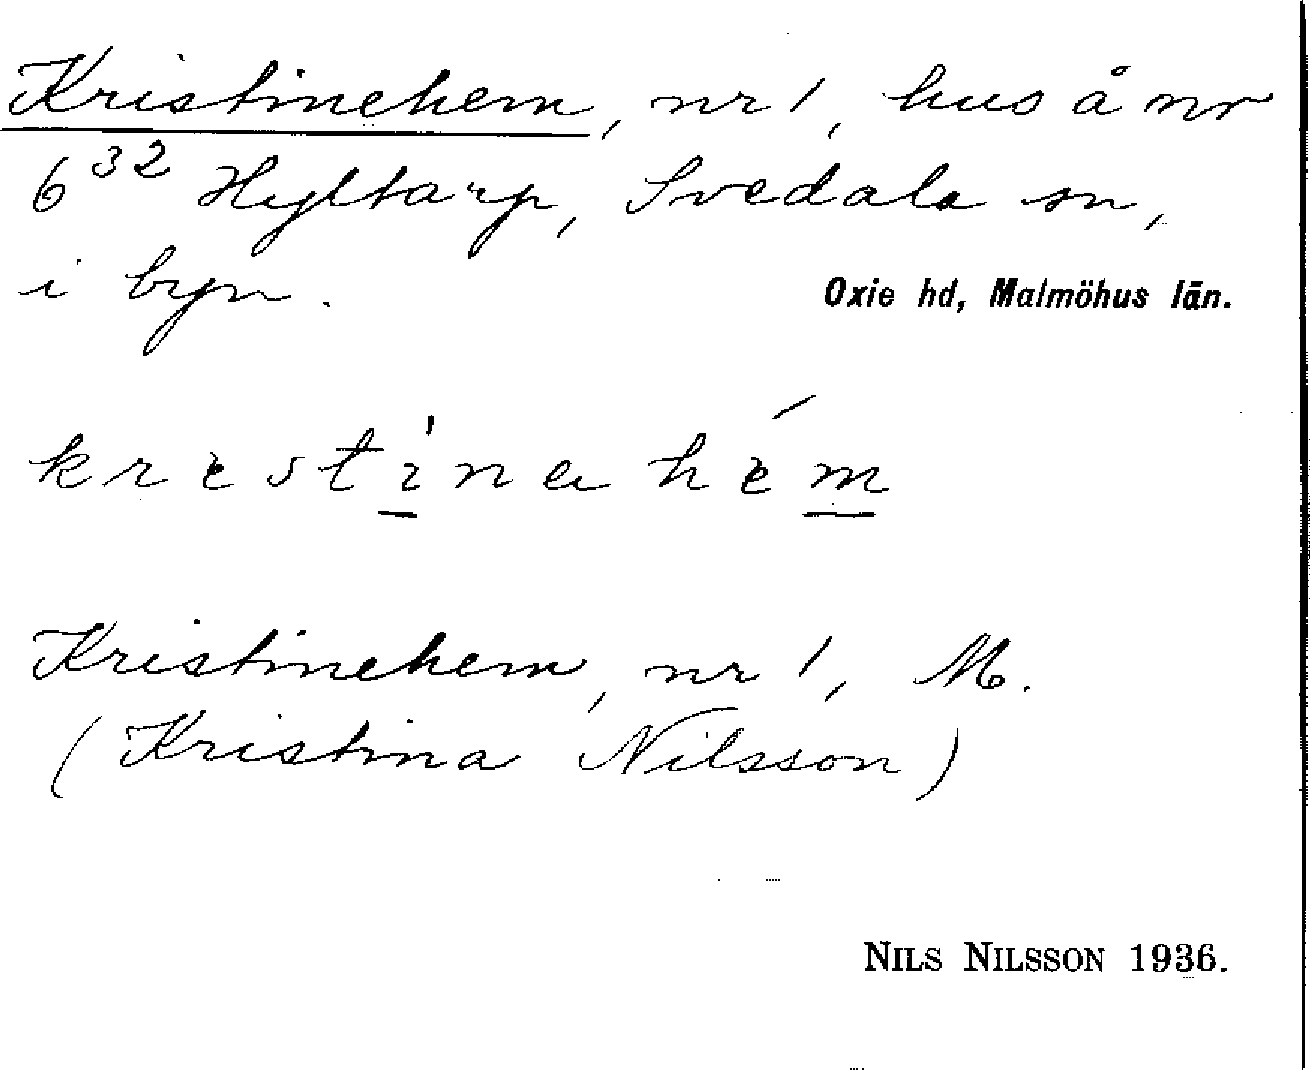 Kristinehem, nr 1, hus å nr
6³² Hyltarp, Svedala sn,
i byn.
Oxie hd, Malmöhus län.
krestinahem
Kristinehem, nr 1, M.
(Kristina Nilsson)
NILS NILSSON 1936.